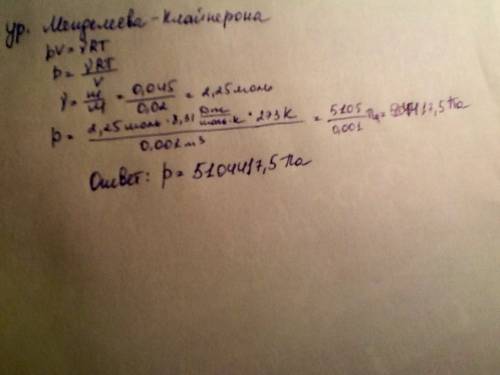 ур. Менделеева-Клайперона
pV = νRT
p = νRT/V
ν = m/M = 0,045/0,02 = 2,25 моль
p = 2,25 моль · 8,31 Дж/моль·К · 273 К / 0,001 м³ = 5105/0,001 Па = 17,5 Па
Ответ: p = 5104417,5 Па